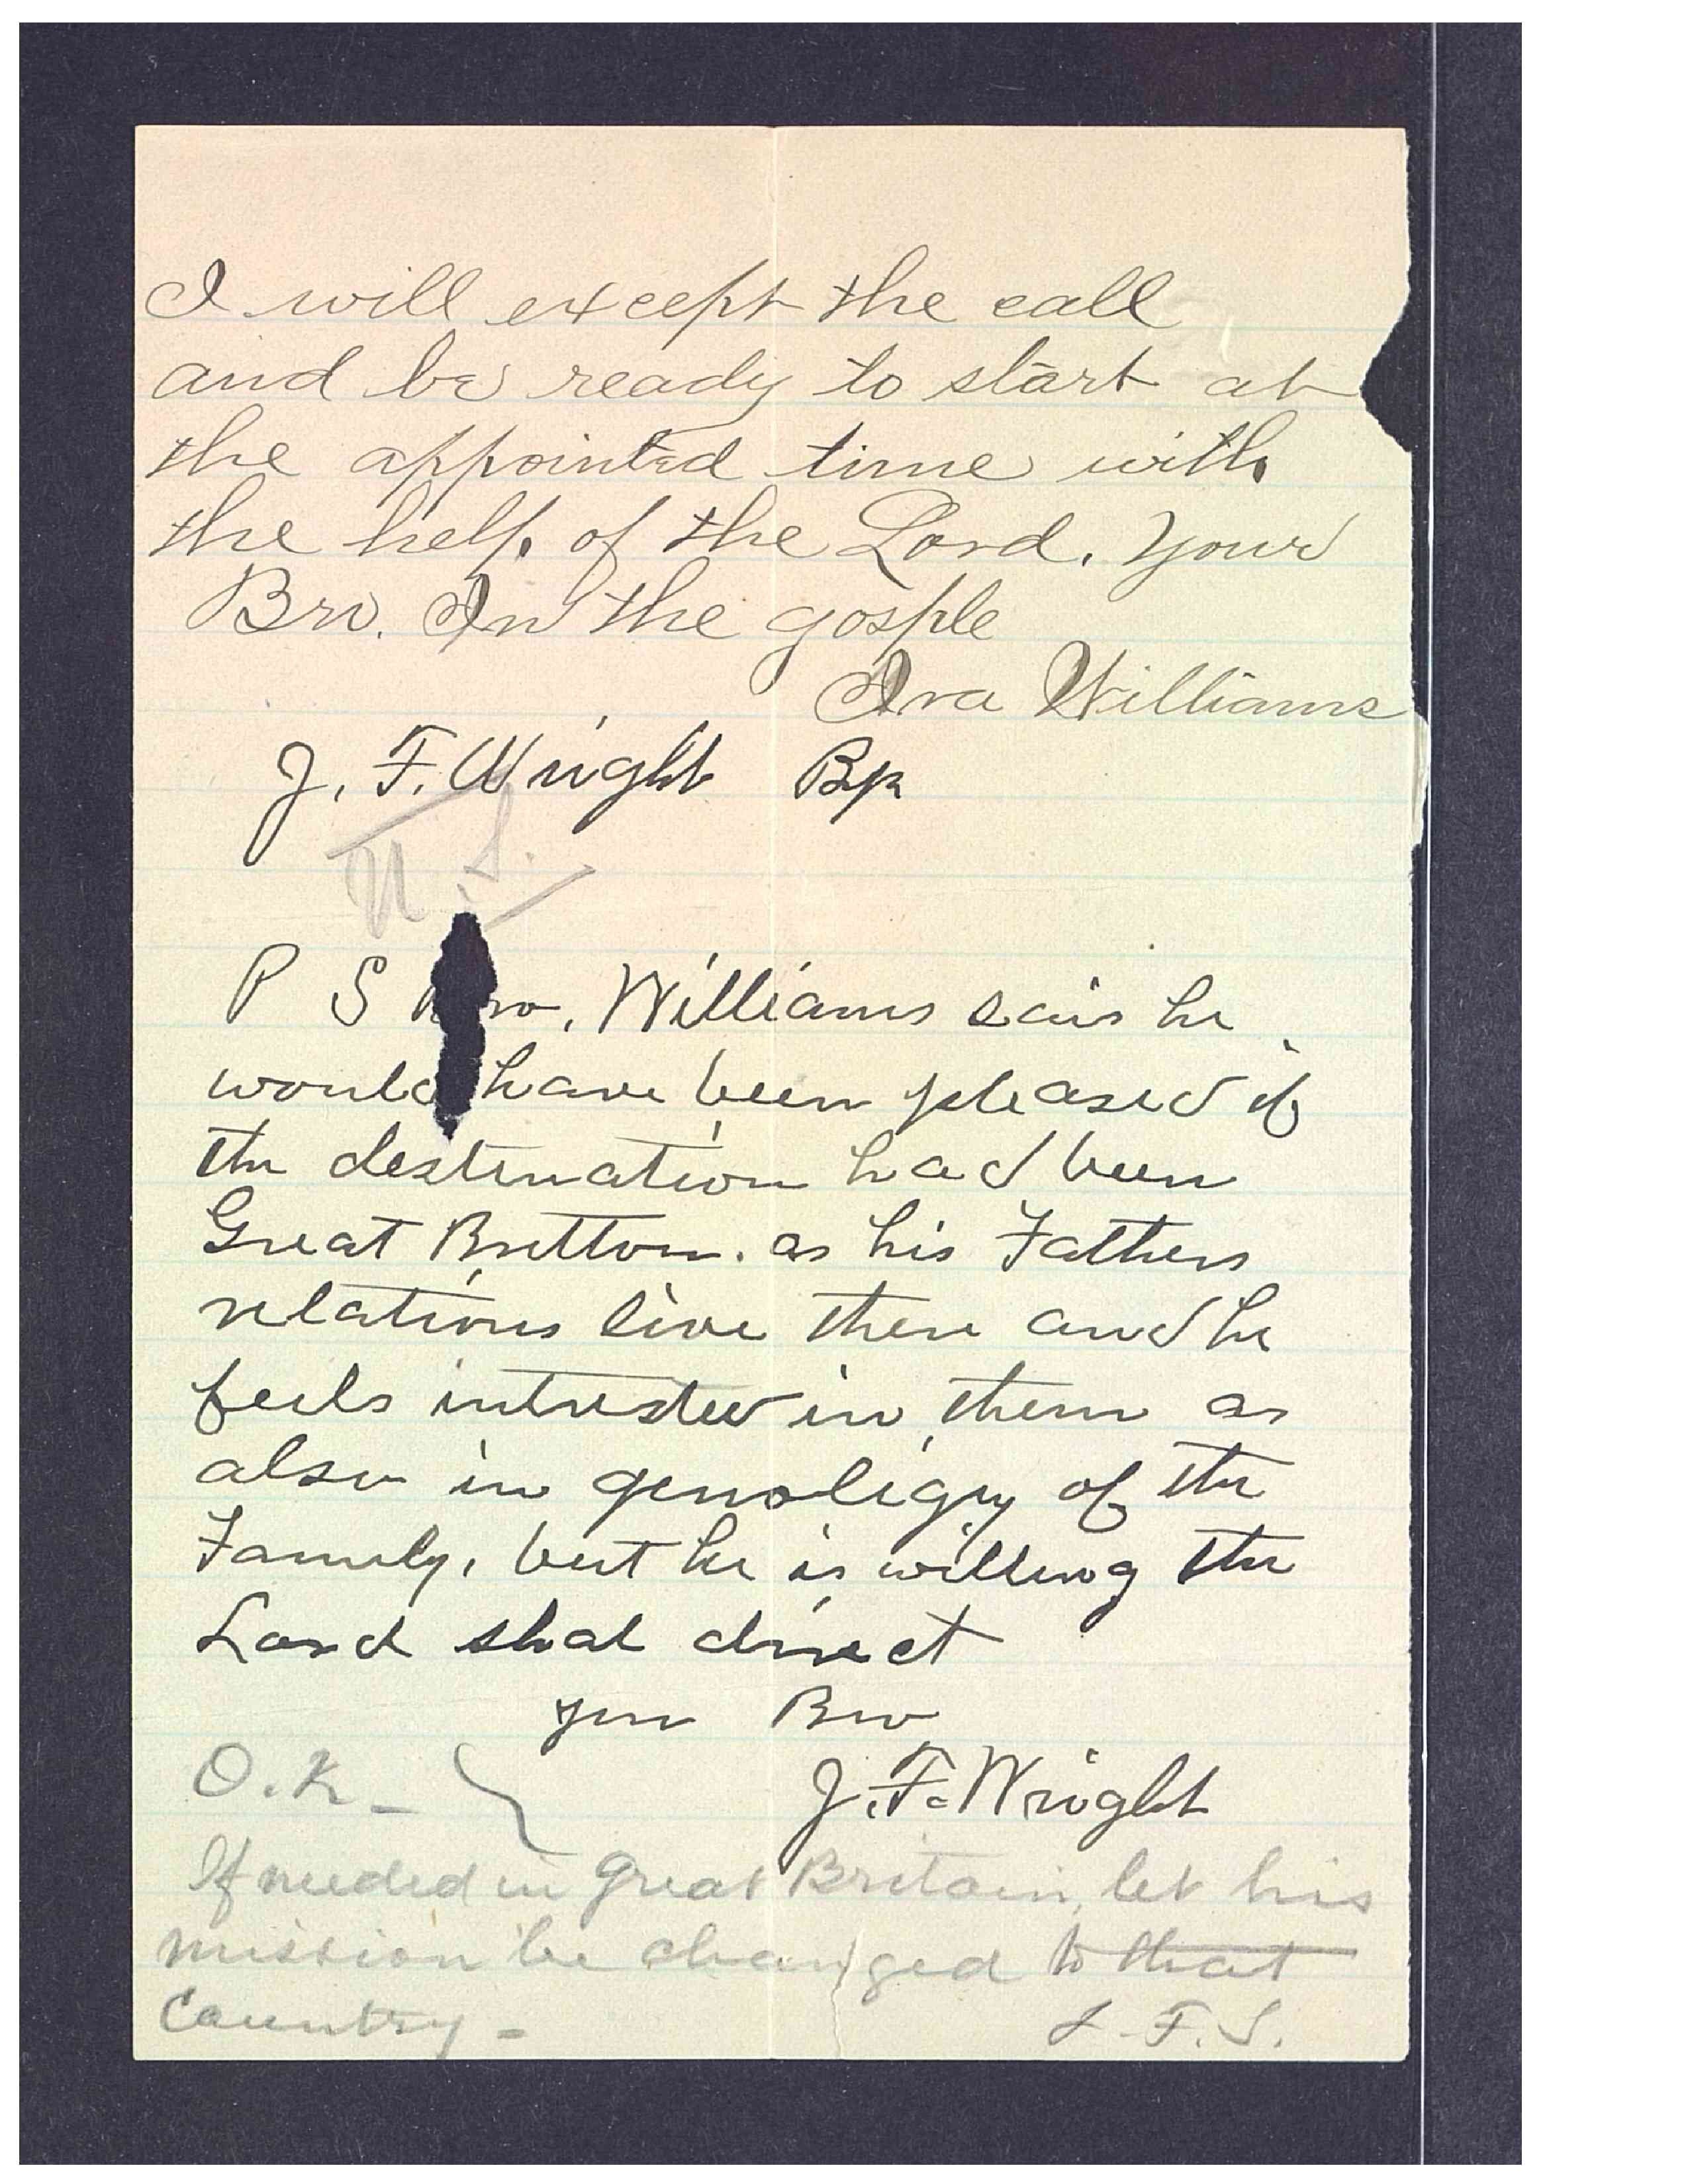 I will except the call
and be ready to start at
the appointed time with
the help of the Lord. Your
Bro. In the gosple
Ira Williams
J. F. Wright Bp
P S Bro. Williams sais he
would have been pleased if
the destination had been
Great Britton. as his Fathers
relations live there and he
feels intrested in them as
also in genoligy of the
Family, but he is willing the
Lord shal direct
your Bro
J. F. Wright
O.K. -
If needed in Great Britain, let his
mission be changed to that
Country -
J. F. S.